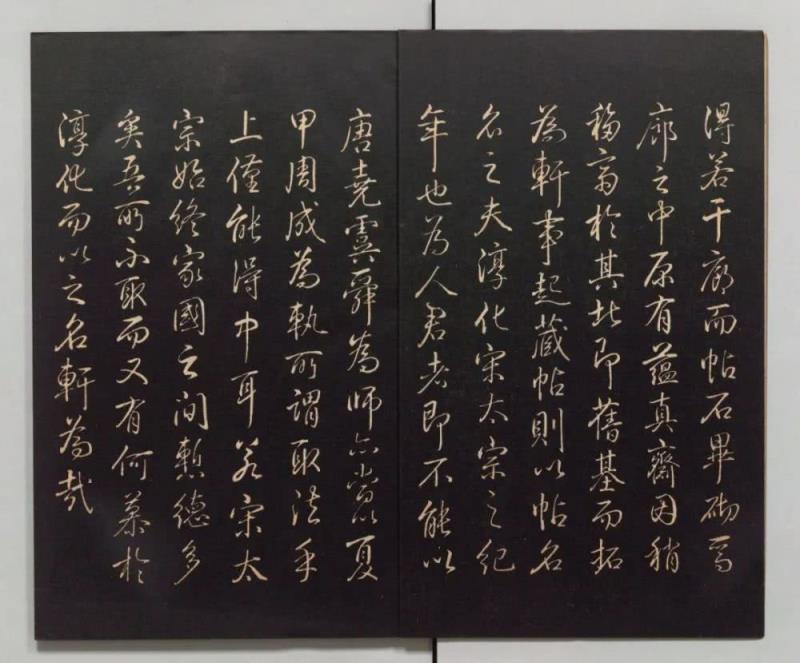 得若干廊而帖石畢砌焉
廊之中原有蘊真齋因稍
移齋於其北即舊基而拓
為軒事起藏帖則以帖名
名之夫淳化宋太宗之紀
年也為人君者即不能以
唐堯虞舜為師亦當以夏
甲周成為軌所謂取法乎
上僅能得中耳若宋太
宗始終家國之間慙德多
矣吾所不取而又有何慕於
淳化而以之名軒為哉